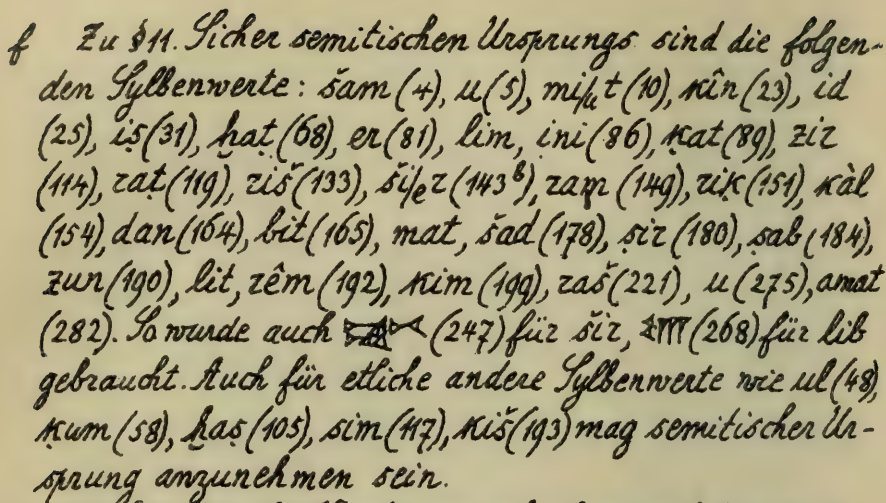 f Zu §11. Sicher semitischen Ursprungs sind die folgen-
den Sylbenwerte: šam (4), u (5), mi/u t (10), kîn (23), id
(25), iṣ (31), ḫaṭ (68), er (81), lim, ini (86), ḳat (89), zir
(114), raṭ (119), riš (133), ši/e r (143ᵇ), ram (149), riḳ (151), kàl
(154), dan (164), bit (165), mat, šad (178), ṣir (180), ṣab (184),
zun (190), lit, rêm (192), kim (199), raš (221), u (275), amat
(282). So wurde auch (247) für šir, (268) für lib
gebraucht. Auch für etliche andere Sylbenwerte wie ul (48),
ḳum (58), ḫaṣ (105), sim (117), kiš (193) mag semitischer Ur-
sprung anzunehmen sein.